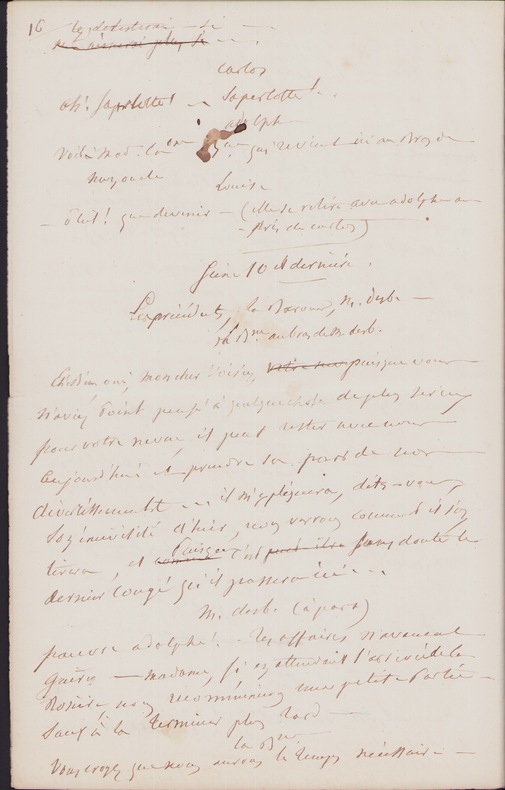 16 les détesterai - si -
carlos
ah! saperlotte! - saperlotte!
adolph
voilà mad. la qui revient ici au bras de
Louise
- ô ciel! que devenir - (elle se retire avec adolphe au-
-près de carlos)
Scène 10 et dernière.
Les précédents, la Baronne, M. desb. -
la Bne au bras de M. desb.
Eh bien oui, mon cher voisin, puisque vous
n'aviez point pensé à quelque chose de plus sérieux
pour votre neveu, il peut rester avec nous
aujourd'hui et prendre sa part de nos
divertissements ... il s'expliquera, dites-vous,
son incivilité d'hier, nous verrons comment il s'en
tirera, et puisque c'est sans doute le
dernier congé qu'il passera ici ...
M. desb. (à part)
pauvre adolphe! - les affaires n'avancent
guères - madame, si en attendant l'arrivée de la
nous recommencions une petite partie -
sauf à la terminer plus tard -
la Bne
Vous croyez que nous aurons le temps nécessaire -